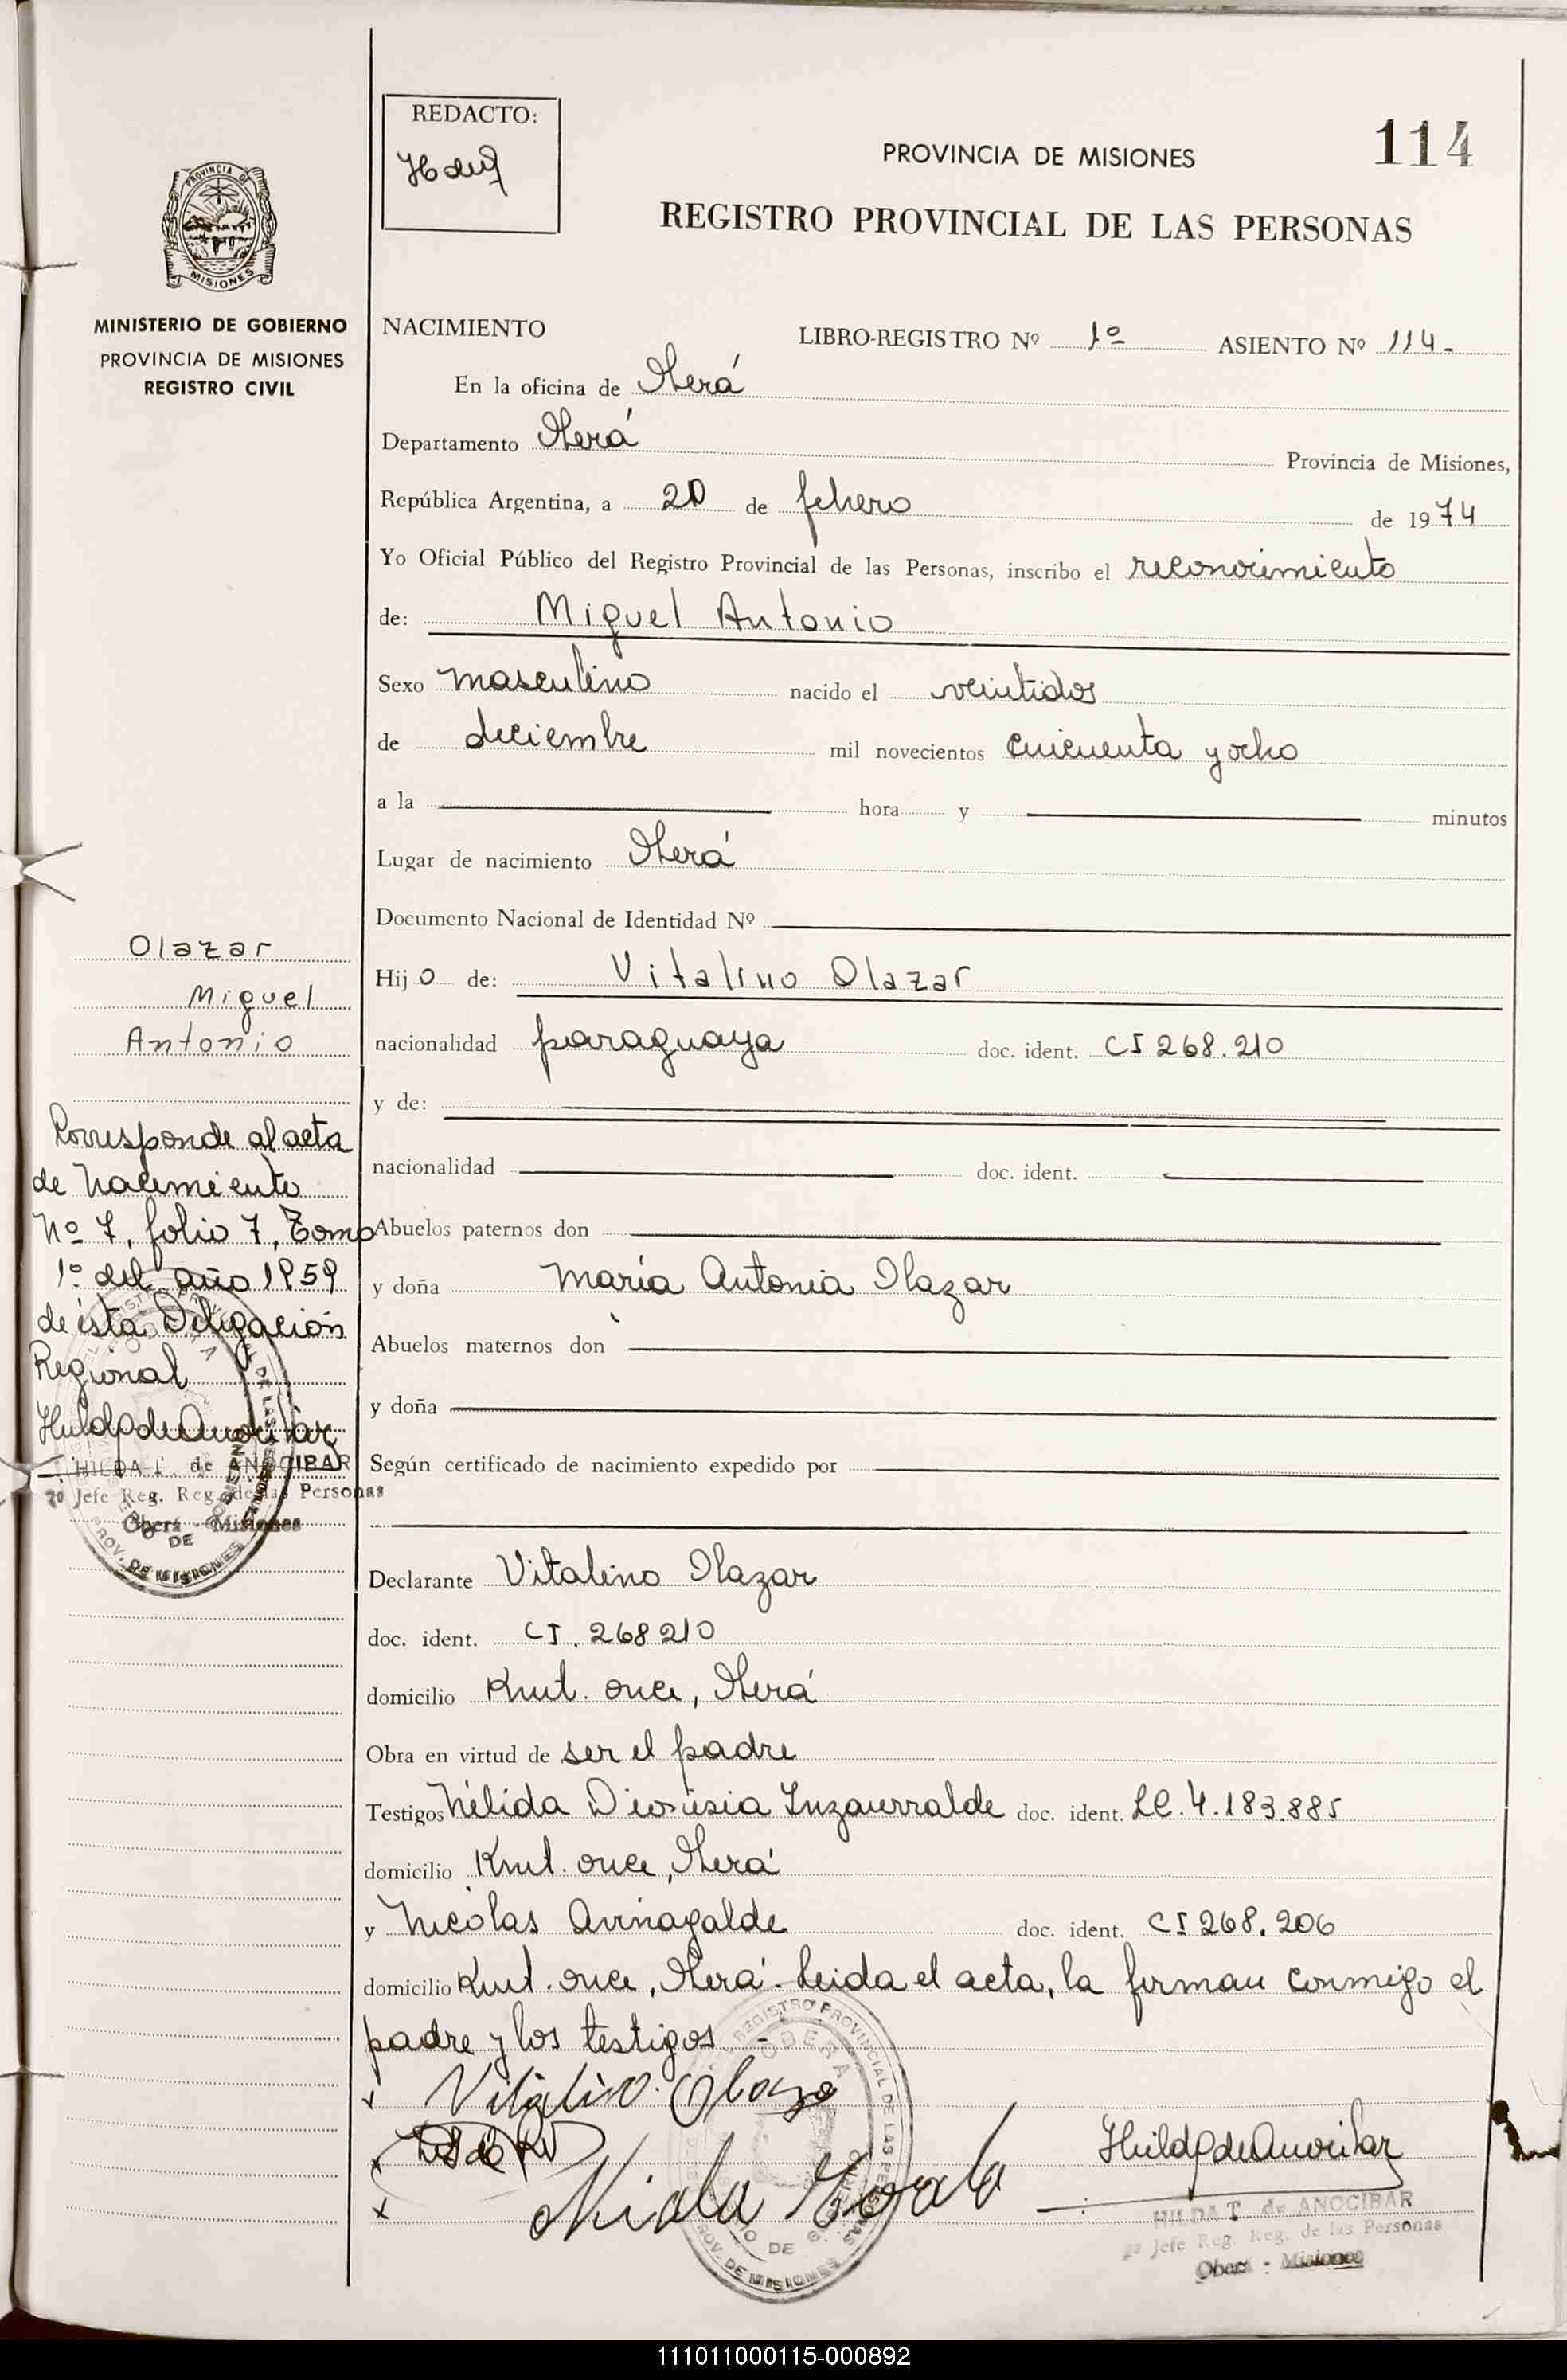 REDACTO:
114
PROVINCIA DE MISIONES
REGISTRO PROVINCIAL DE LAS PERSONAS
PROVINCIA DE
MISIONES
MINISTERIO DE GOBIERNO
PROVINCIA DE MISIONES
REGISTRO CIVIL
NACIMIENTO LIBRO-REGISTRO Nº 1º ASIENTO Nº 114-
En la oficina de Oberá
Departamento Oberá Provincia de Misiones,
República Argentina, a 20 de febrero de 1974
Yo Oficial Público del Registro Provincial de las Personas, inscribo el reconocimiento
de: Miguel Antonio
Sexo masculino nacido el veintidos
de diciembre mil novecientos cincuenta y ocho
a la hora y minutos
Lugar de nacimiento Oberá
Documento Nacional de Identidad Nº
Hijo de: Vitalino Olazar
nacionalidad paraguaya doc. ident. CI 268.210
y de:
nacionalidad doc. ident.
Abuelos paternos don
y doña María Antonia Olazar
Abuelos maternos don
y doña
Según certificado de nacimiento expedido por
Declarante Vitalino Olazar
doc. ident. CI. 268210
domicilio Kmt. once, Oberá
Obra en virtud de ser el padre
Testigos Nélida Dionisia Inzaurralde doc. ident. LC. 4.183.885
domicilio Kmt. once, Oberá
y Nicolas Arrinagalde doc. ident. CI 268.206
domicilio Kmt. once, Oberá. Leida el acta, la firman conmigo el
padre y los testigos.-
Olazar
Miguel
Antonio
Corresponde al acta
de Nacimiento
Nº 7, folio 7, Tomo
1º del año 1959
de ésta Delegación
Regional
HILDA T. de ANOCIBAR
2º Jefe Reg. Reg. de las Personas
Oberá - Misiones
REGISTRO PROVINCIAL DE LAS PERSONAS
OBERA
PROV. DE MISIONES
HILDA T. de ANOCIBAR
2º Jefe Reg. Reg. de las Personas
Oberá - Misiones
111011000115-000892